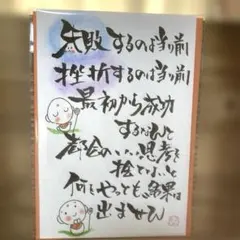 失敗するのは当り前
挫折するのは当り前
最初から成功
するなんて
都合のいい思考を
捨てないと
何をやっても効果は
出ません